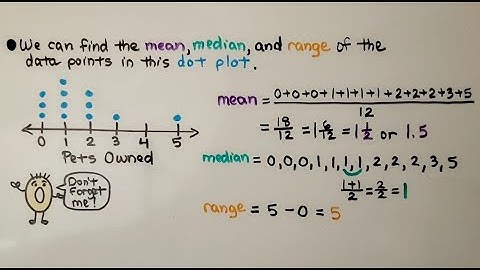 ● We can find the mean, median, and range of the
data points in this dot plot.
0 1 2 3 4 5
Pets Owned
0
Don't
forget
me!
mean = 0+0+0+1+1+1+1+2+2+2+3+5
12
= 18/12 = 1 6/12 = 1 1/2 or 1.5
median = 0,0,0,1,1,1,1,2,2,2,3,5
1+1/2 = 2/2 = 1
range = 5 - 0 = 5